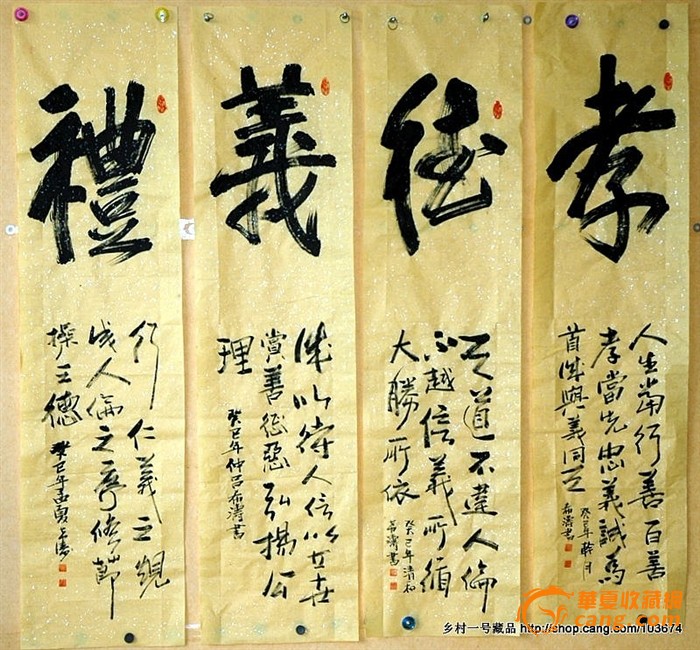 孝
人生當行善百善
孝當先忠義誠為
首誠與義同
癸巳年 月
希濤書
德
道不違人倫
不越信義所循
大勝所依
癸巳年清和
希濤書
義
誠以待人信以
賞善懲惡弘揚公
理
癸巳年仲呂希濤書
禮
行仁義之規
成人倫之序修節
操之德
癸巳年孟夏希濤
華夏收藏網
乡村一号藏品 http://shop.cang.com/103674